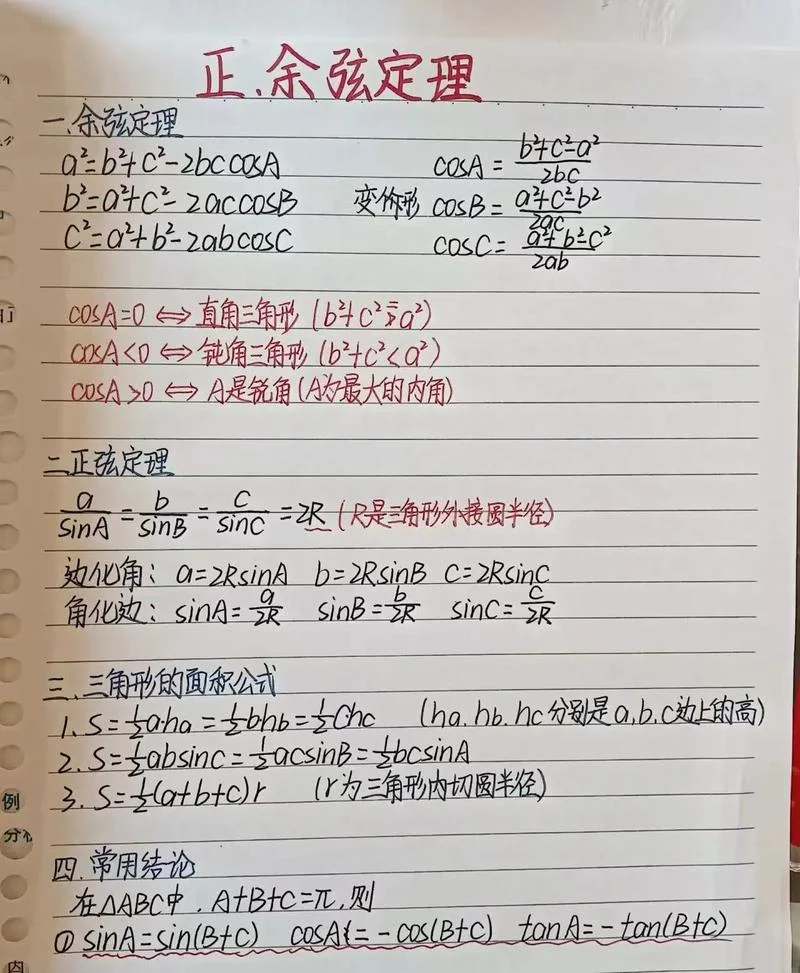 正、余弦定理
一.余弦定理
a²=b²+c²-2bccosA cosA=\frac{b²+c²-a²}{2bc}
b²=a²+c²-2accosB 变形 cosB=\frac{a²+c²-b²}{2ac}
c²=a²+b²-2abcosC cosC=\frac{a²+b²-c²}{2ab}
cosA=0⇔直角三角形(b²+c²=a²)
cosA<0⇔钝角三角形(b²+c²<a²)
cosA>0⇔A是锐角(A为最大的内角)
二正弦定理
\frac{a}{sinA}=\frac{b}{sinB}=\frac{c}{sinC}=2R(R是三角形外接圆半径)
边化角: a=2RsinA b=2RsinB c=2RsinC
角化边: sinA=\frac{a}{2R} sinB=\frac{b}{2R} sinC=\frac{c}{2R}
三、三角形的面积公式
1、S=½a·ha=½bhb=½Chc (ha.hb.hc分别是a,b,c边上的高)
2.S=½absinc=½acsinB=½bcsinA
3.S=½(a+b+c)r (r为三角形内切圆半径)
四.常用结论
在△ABC中,A+B+C=π,则
①sinA=sin(B+C) cosA=-cos(B+C) tanA=-tan(B+C)
例
分
内